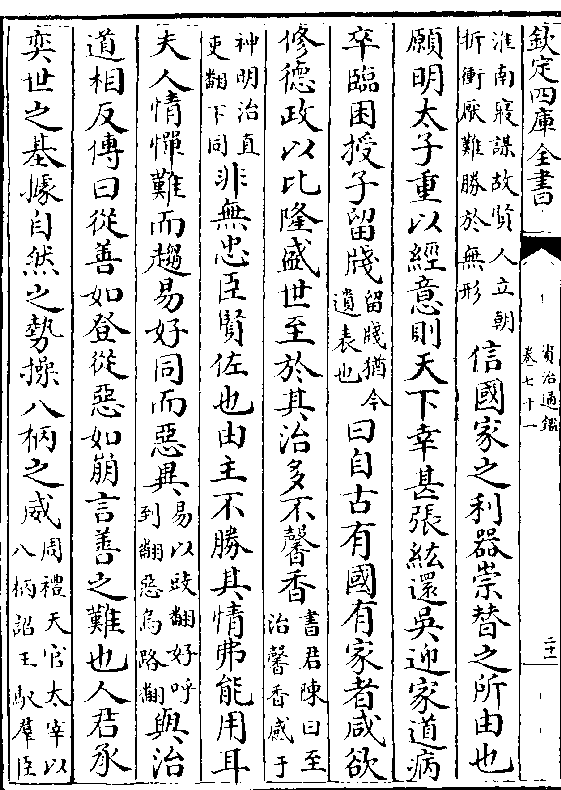 欽定四庫全書
資治通鑑
卷七十一
二十一
淮南寢謀故賢人立朝
折衝厭難勝於無形
信國家之利器崇替之所由也
願明太子重以經意則天下幸甚張紘還吳迎家道病
卒臨困授子留牋留牋猶今
遺表也曰自古有國有家者咸欲
修德政以比隆盛世至於其治多不馨香書君陳曰至
治馨香感于
神明治直
吏翻下同非無忠臣賢佐也由主不勝其情弗能用耳
夫人情憚難而趨易好同而惡異易以豉翻好呼
到翻惡烏路翻與治
道相反傳曰從善如登從惡如崩言善之難也人君承
奕世之基據自然之勢操八柄之威周禮天官太宰以
八柄詔王馭羣臣